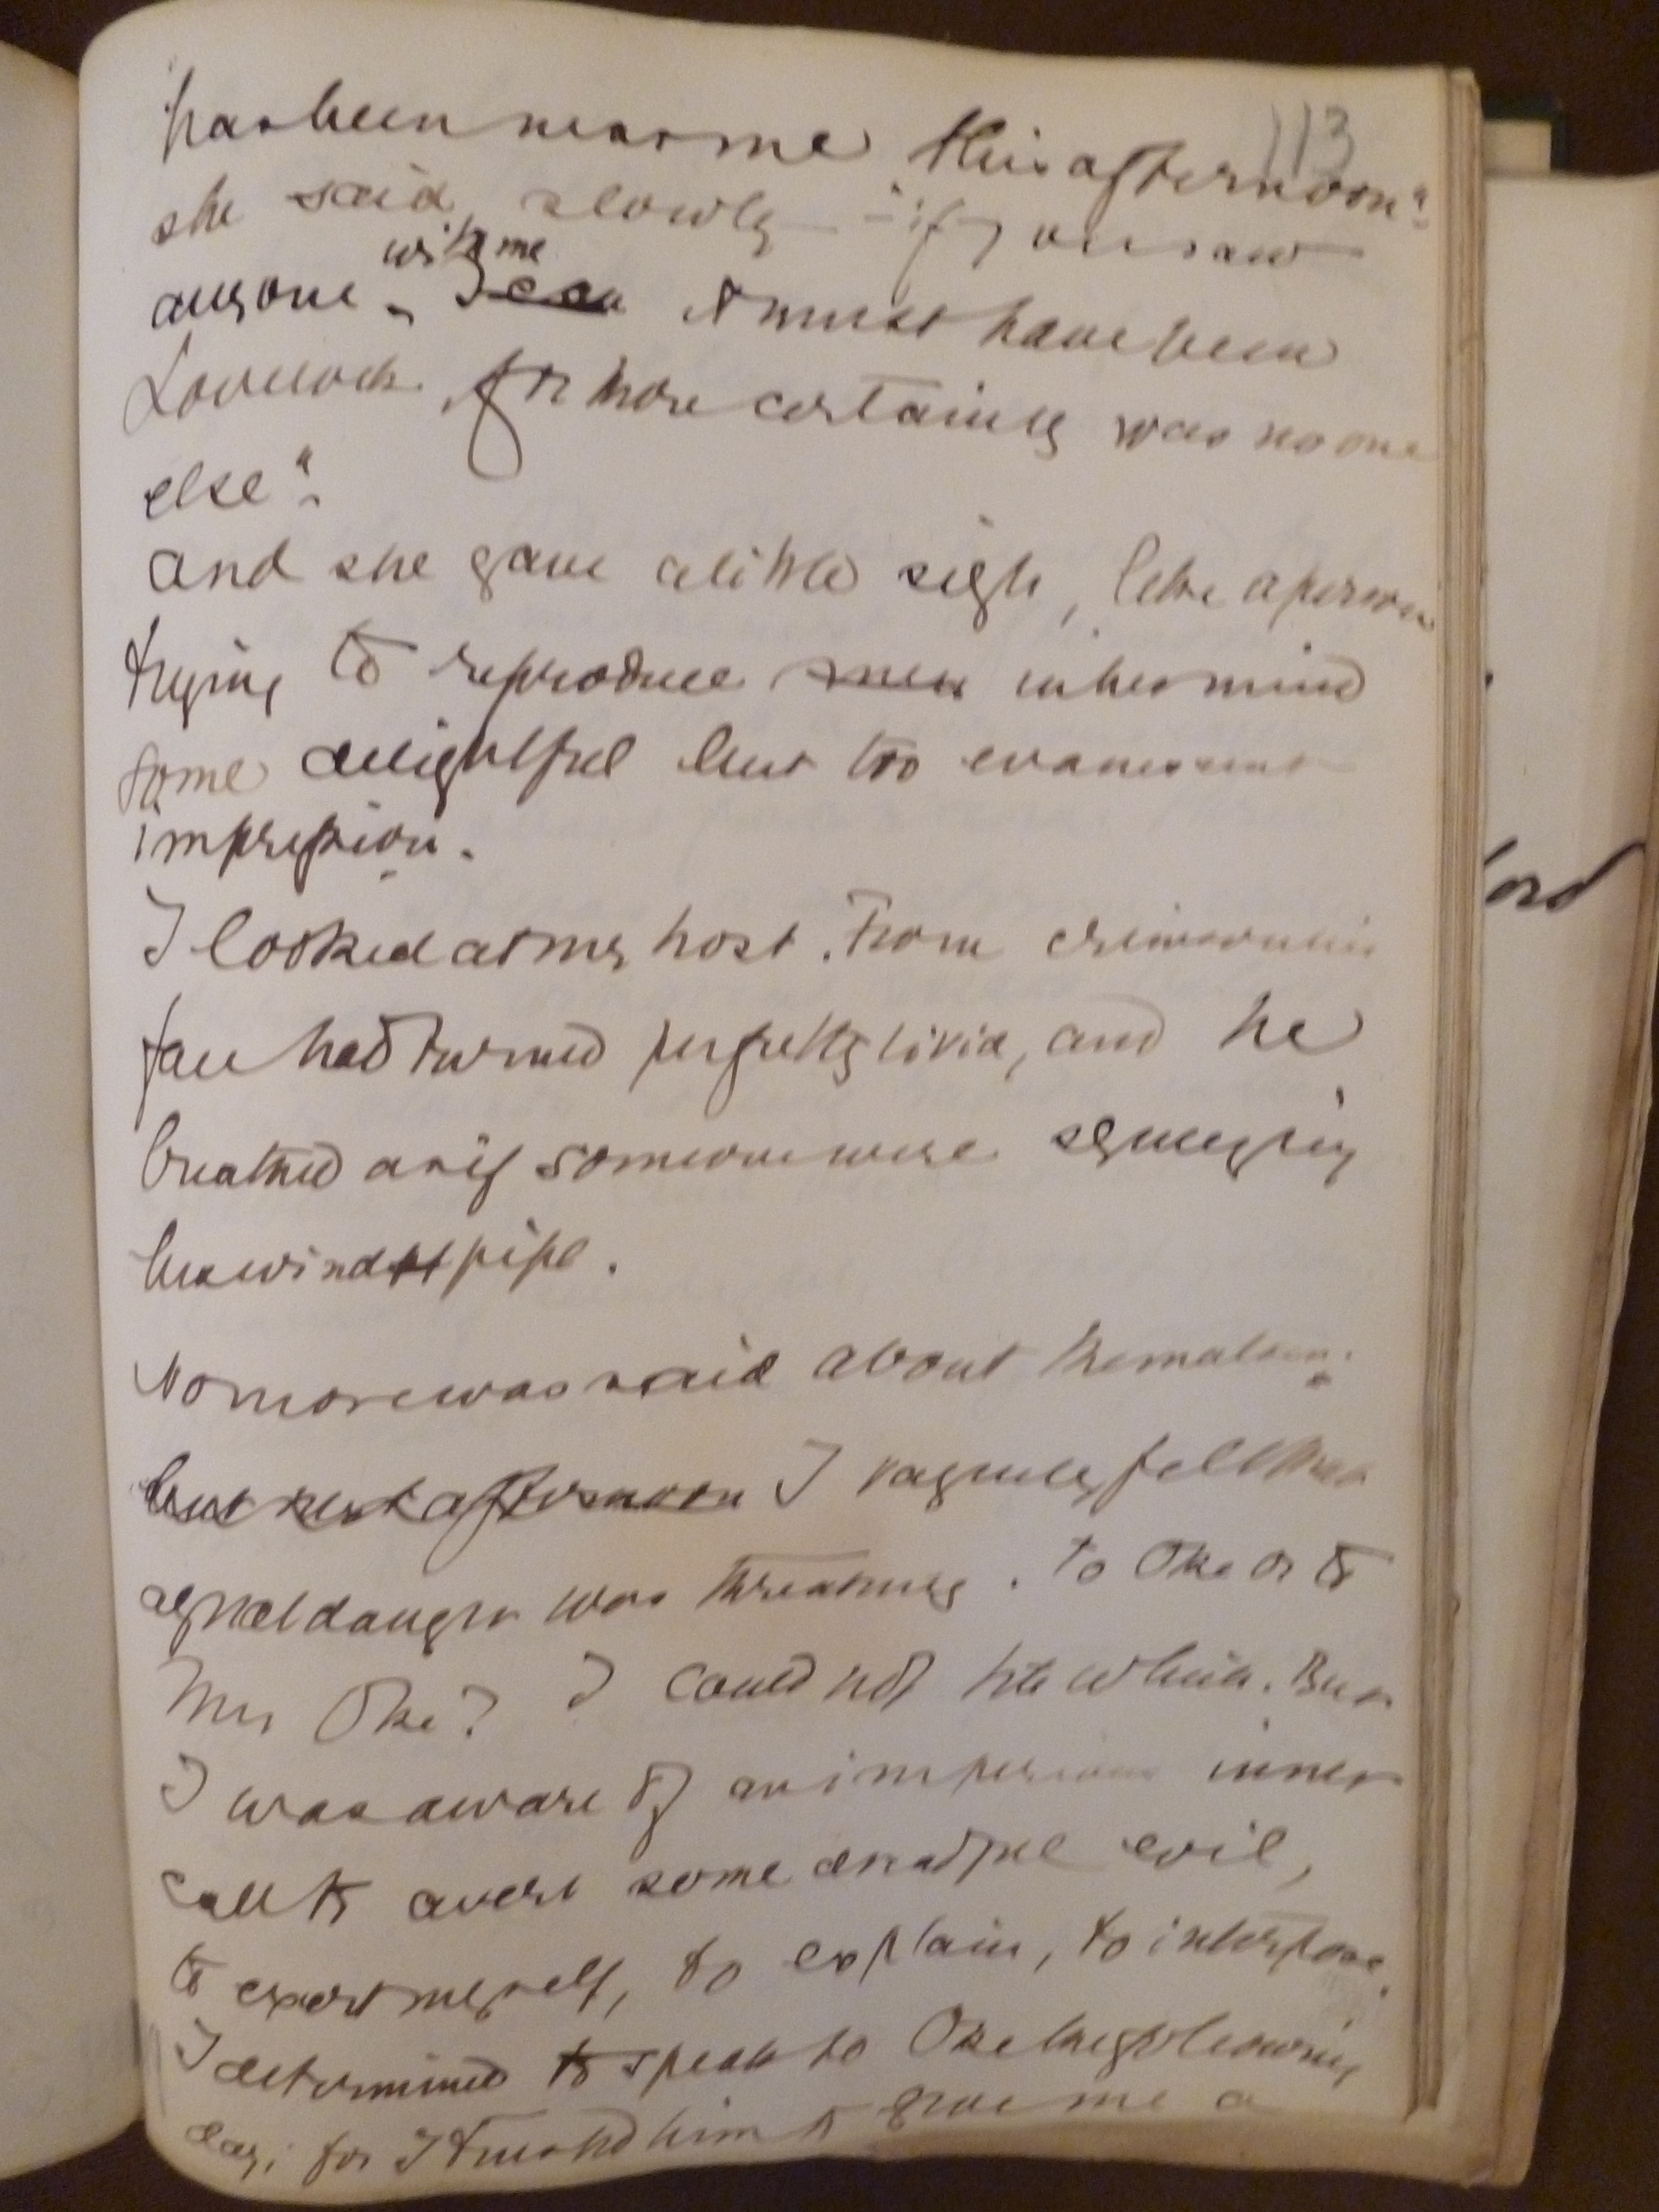 113
has been near me this afternoon"
she said slowly – "if you saw
anyone with me, I can it must have been
Lovelock, for there certainly was no one
else".
and she gave a little sigh, like a person
trying to reproduce in her mind
some delightful but too evanescent
impression.
I looked at my host. From crimson his
face had turned perfectly livid, and he
breathed as if someone were squeezing
his windpipe.
No more was said about the matter.
but next afternoon I vaguely felt that
a great danger was threatening. To Oke or to
Mrs Oke? I could not tell which. But
I was aware of an imperious inner
call to avert some dreadful evil,
to exert myself, to explain, to interpose.
I determined to speak to Oke the following
day, for I trusted him to give me a
ord